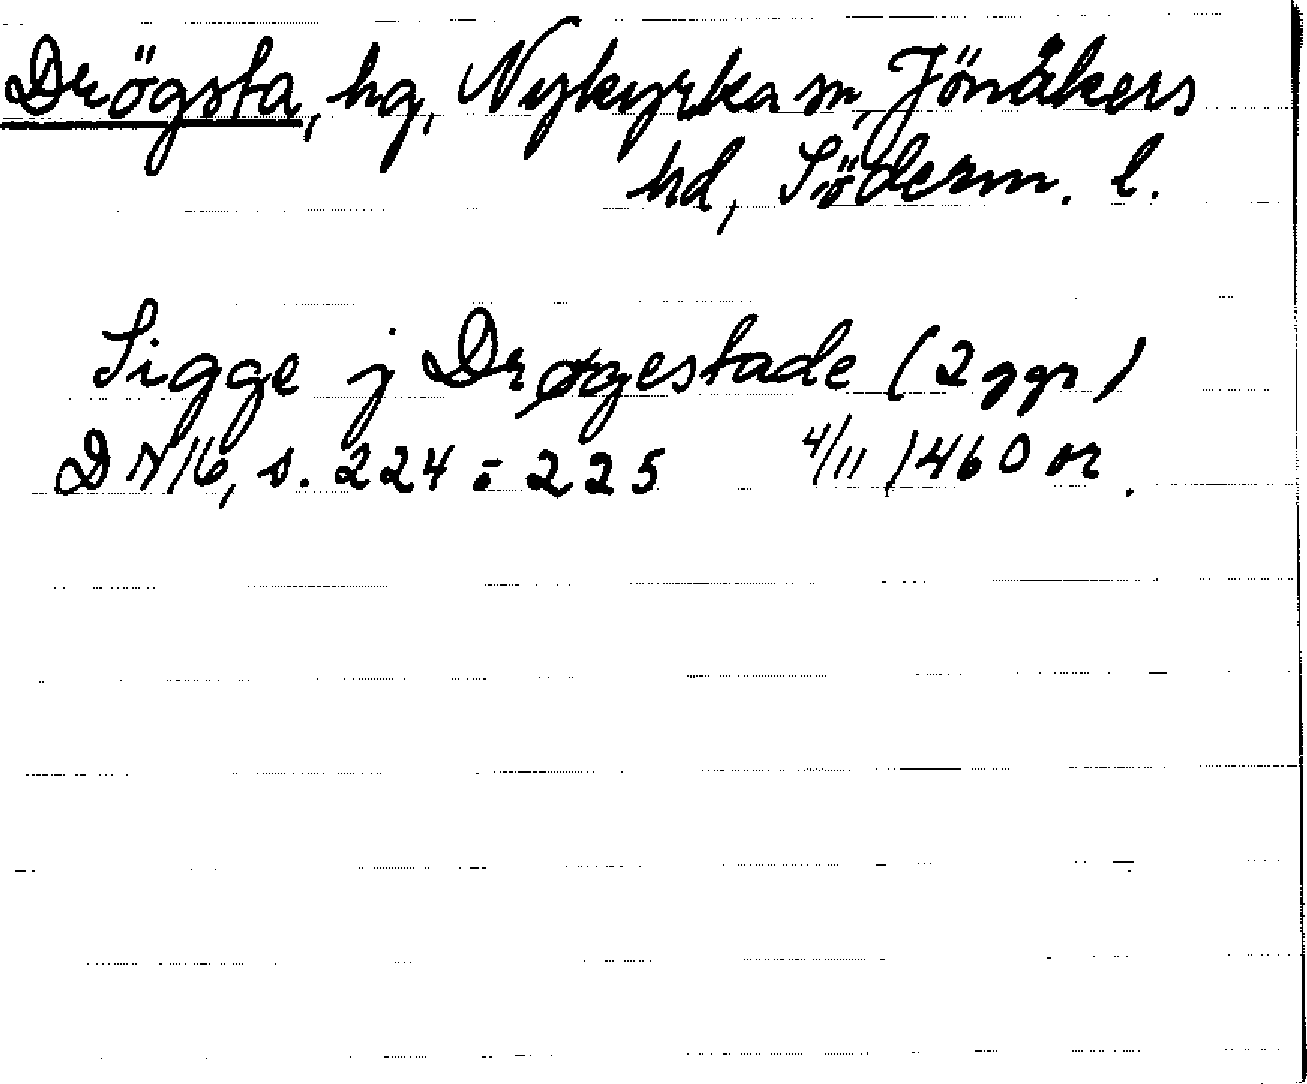 Drögsta, hg, Nykyrka sn, Jönåkers
hd, Söderm. l.
Sigge j Drøgestade (2 ggr)
D 7/6, s. 224 - 225 4/11 1460 or.